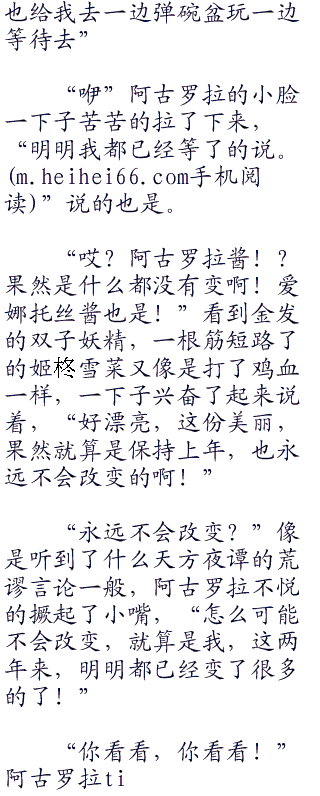 也给我去一边弹碗盆玩一边
等待去”
“咿”阿古罗拉的小脸
一下子苦苦的拉了下来，
“明明我都已经等了的说。
(m.heihei66.com手机阅
读)”说的也是。
“哎？阿古罗拉酱！？
果然是什么都没有变啊！爱
娜托丝酱也是！”看到金发
的双子妖精，一根筋短路了
的姬柊雪菜又像是打了鸡血
一样，一下子兴奋了起来说
着，“好漂亮，这份美丽，
果然就算是保持上年，也永
远不会改变的啊！”
“永远不会改变？”像
是听到了什么天方夜谭的荒
谬言论一般，阿古罗拉不悦
的撅起了小嘴，“怎么可能
不会改变，就算是我，这两
年来，明明都已经变了很多
的了！”
“你看看，你看看！”
阿古罗拉ti